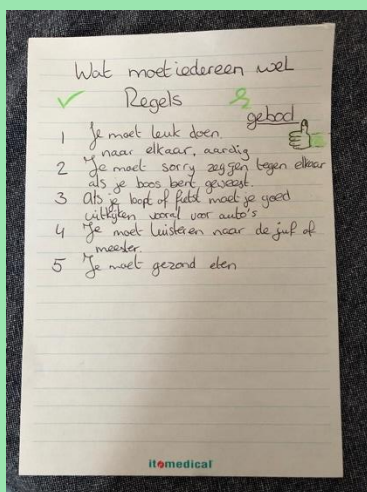 Wat moet iedereen wel
Regels
gebod
1 Je moet leuk doen.
naar elkaar, aardig
2 Je moet sorry zeggen tegen elkaar
als je boos bent geweest.
3 Als je loopt of fietst moet je goed
uitkijken vooral voor auto's
4 Je moet luisteren naar de juf of
meester.
5 Je moet gezond eten
itomedical